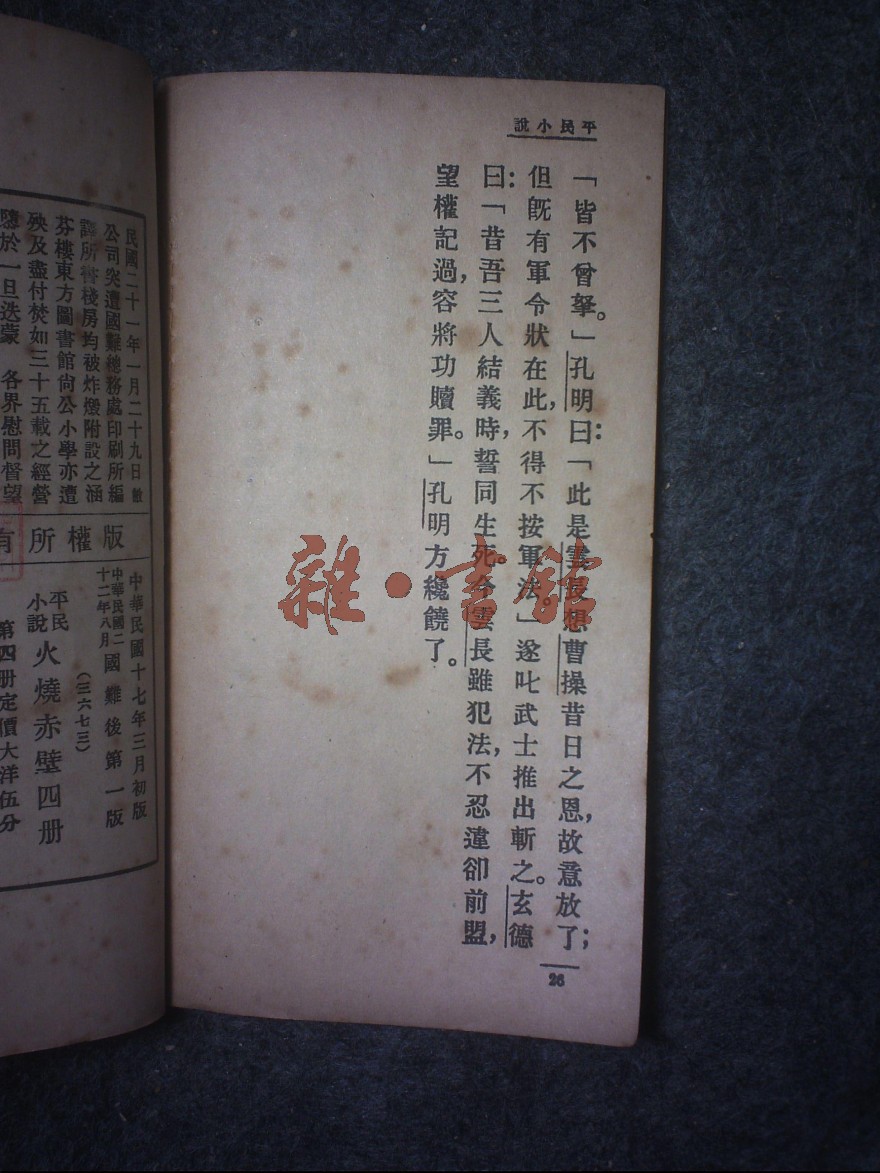 平民小說
「皆不曾拏。」孔明曰：「此是雲長想曹操昔日之恩，故意放了；
但旣有軍令狀在此，不得不按軍法。」遂叱武士推出斬之。玄德
曰：「昔吾三人結義時，誓同生死。今雲長雖犯法，不忍違卻前盟，
望權記過，容將功贖罪。」孔明方纔饒了。
26
雜·書館
民國二十一年一月二十九日敝
公司突遭國難總務處印刷所編
譯所書棧房均被炸燬附設之涵
芬樓東方圖書館尚公小學亦遭
殃及盡付焚如三十五載之經營
隳於一旦迭蒙 各界慰問督望
版權所有
中華民國十七年三月初版
中華民國二十二年八月國難後第一版
（三六七三）
平民小說 火燒赤壁四册
第四册定價大洋伍分